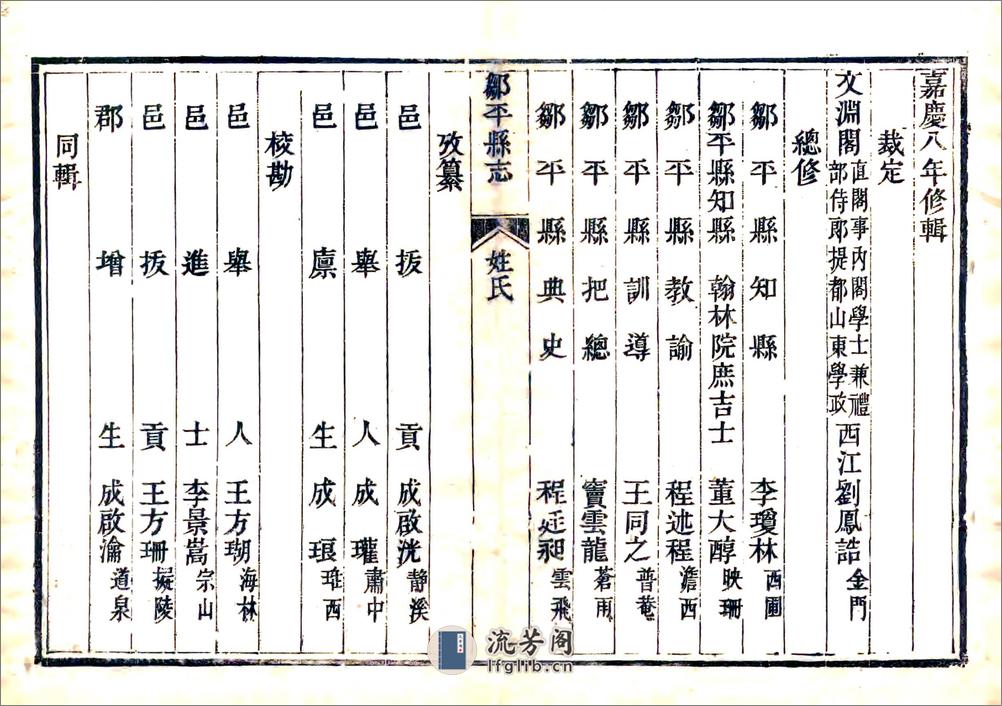 嘉慶八年修輯
裁定
文淵閣直閣事內閣學士兼禮部侍郎提都山東學政西江劉鳳誥金門
總修
鄒平縣知縣李瓊林西圃
鄒平縣知縣翰林院庶吉士董大醇映珊
鄒平縣教諭程述程澹西
鄒平縣訓導王同之普菴
鄒平縣把總竇雲龍蒼雨
鄒平縣典史程延昶雲飛
鄒平縣志 姓氏
攷纂
邑拔貢成啟洸靜溪
邑舉人成瓘肅中
邑廪生成琅琟西
校勘
邑舉人王方瑚海林
邑進士李景嵩宗山
邑拔貢王方珊擬陵
郡增生成啟瀹道泉
同輯
流芳阁
lfglib.cn